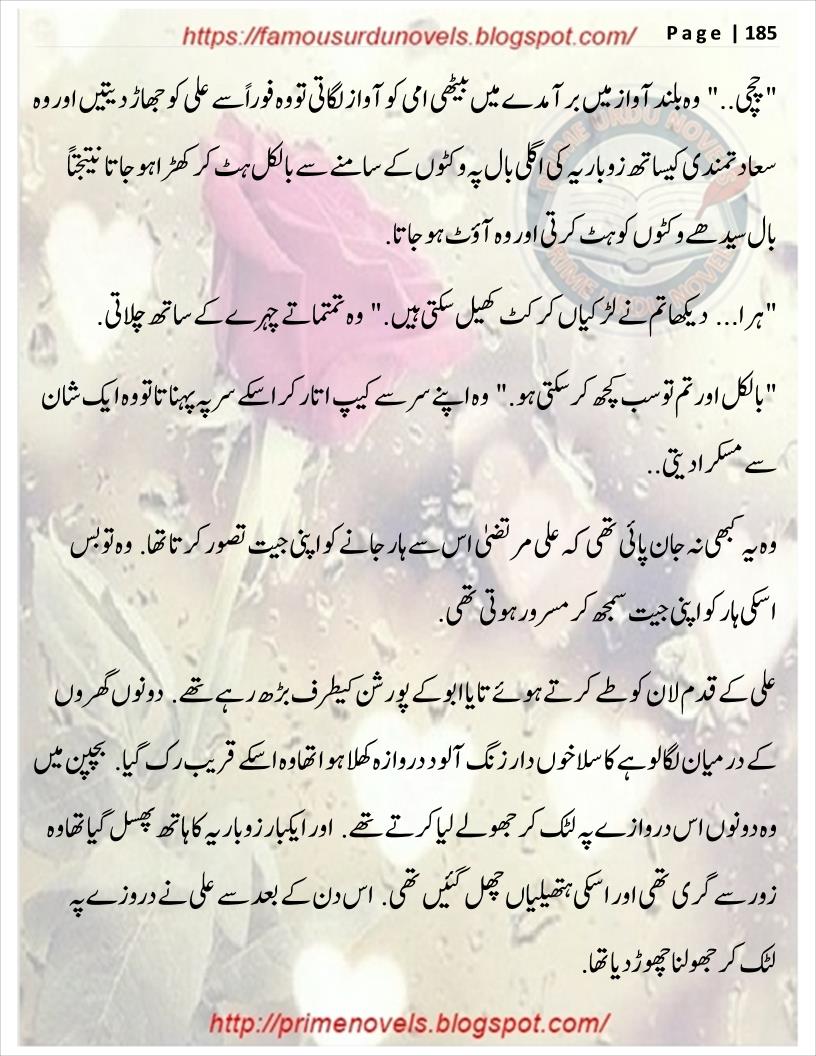 https://famousurdunovels.blogspot.com/ Page | 185
"چچی.." وہ بلند آواز میں برآمدے میں بیٹھی امی کو آواز لگاتی تو وہ فوراً سے علی کو جھاڑ دیتیں اور وہ
سعادتمندی کیساتھ زوباریہ کی اگلی بال پہ وکٹوں کے سامنے سے بالکل ہٹ کر کھڑا ہو جاتا نتیجتاً
بال سیدھے وکٹوں کو ہٹ کرتی اور وہ آؤٹ ہو جاتا.
"ہرا... دیکھا تم نے لڑکیاں کرکٹ کھیل سکتی ہیں." وہ تمتماتے چہرے کے ساتھ چلاتی.
"بالکل اور تم تو سب کچھ کر سکتی ہو." وہ اپنے سر سے کیپ اتار کر اسکے سر پہ پہناتا تو وہ ایک شان
سے مسکرا دیتی..
وہ یہ کبھی نہ جان پائی تھی کہ علی مرتضیٰ اس سے ہار جانے کو اپنی جیت تصور کرتا تھا. وہ تو بس
اسکی ہار کو اپنی جیت سمجھ کر مسرور ہوتی تھی.
علی کے قدم لان کو طے کرتے ہوئے تایا ابو کے پورشن کیطرف بڑھ رہے تھے. دونوں گھروں
کے درمیان لگا لوہے کا سلاخوں دار زنگ آلود دروازہ کھلا ہوا تھا وہ اسکے قریب رک گیا. بچپن میں
وہ دونوں اس دروازے پہ لٹک کر جھولے لیا کرتے تھے. اور ایکبار زوباریہ کا ہاتھ پھسل گیا تھا وہ
زور سے گری تھی اور اسکی ہتھیلیاں چھل گئیں تھی. اس دن کے بعد سے علی نے دروزے پہ
لٹک کر جھولنا چھوڑ دیا تھا.
http://primenovels.blogspot.com/
PRIME URDU NOVELS
PRIME URDU NOVELS